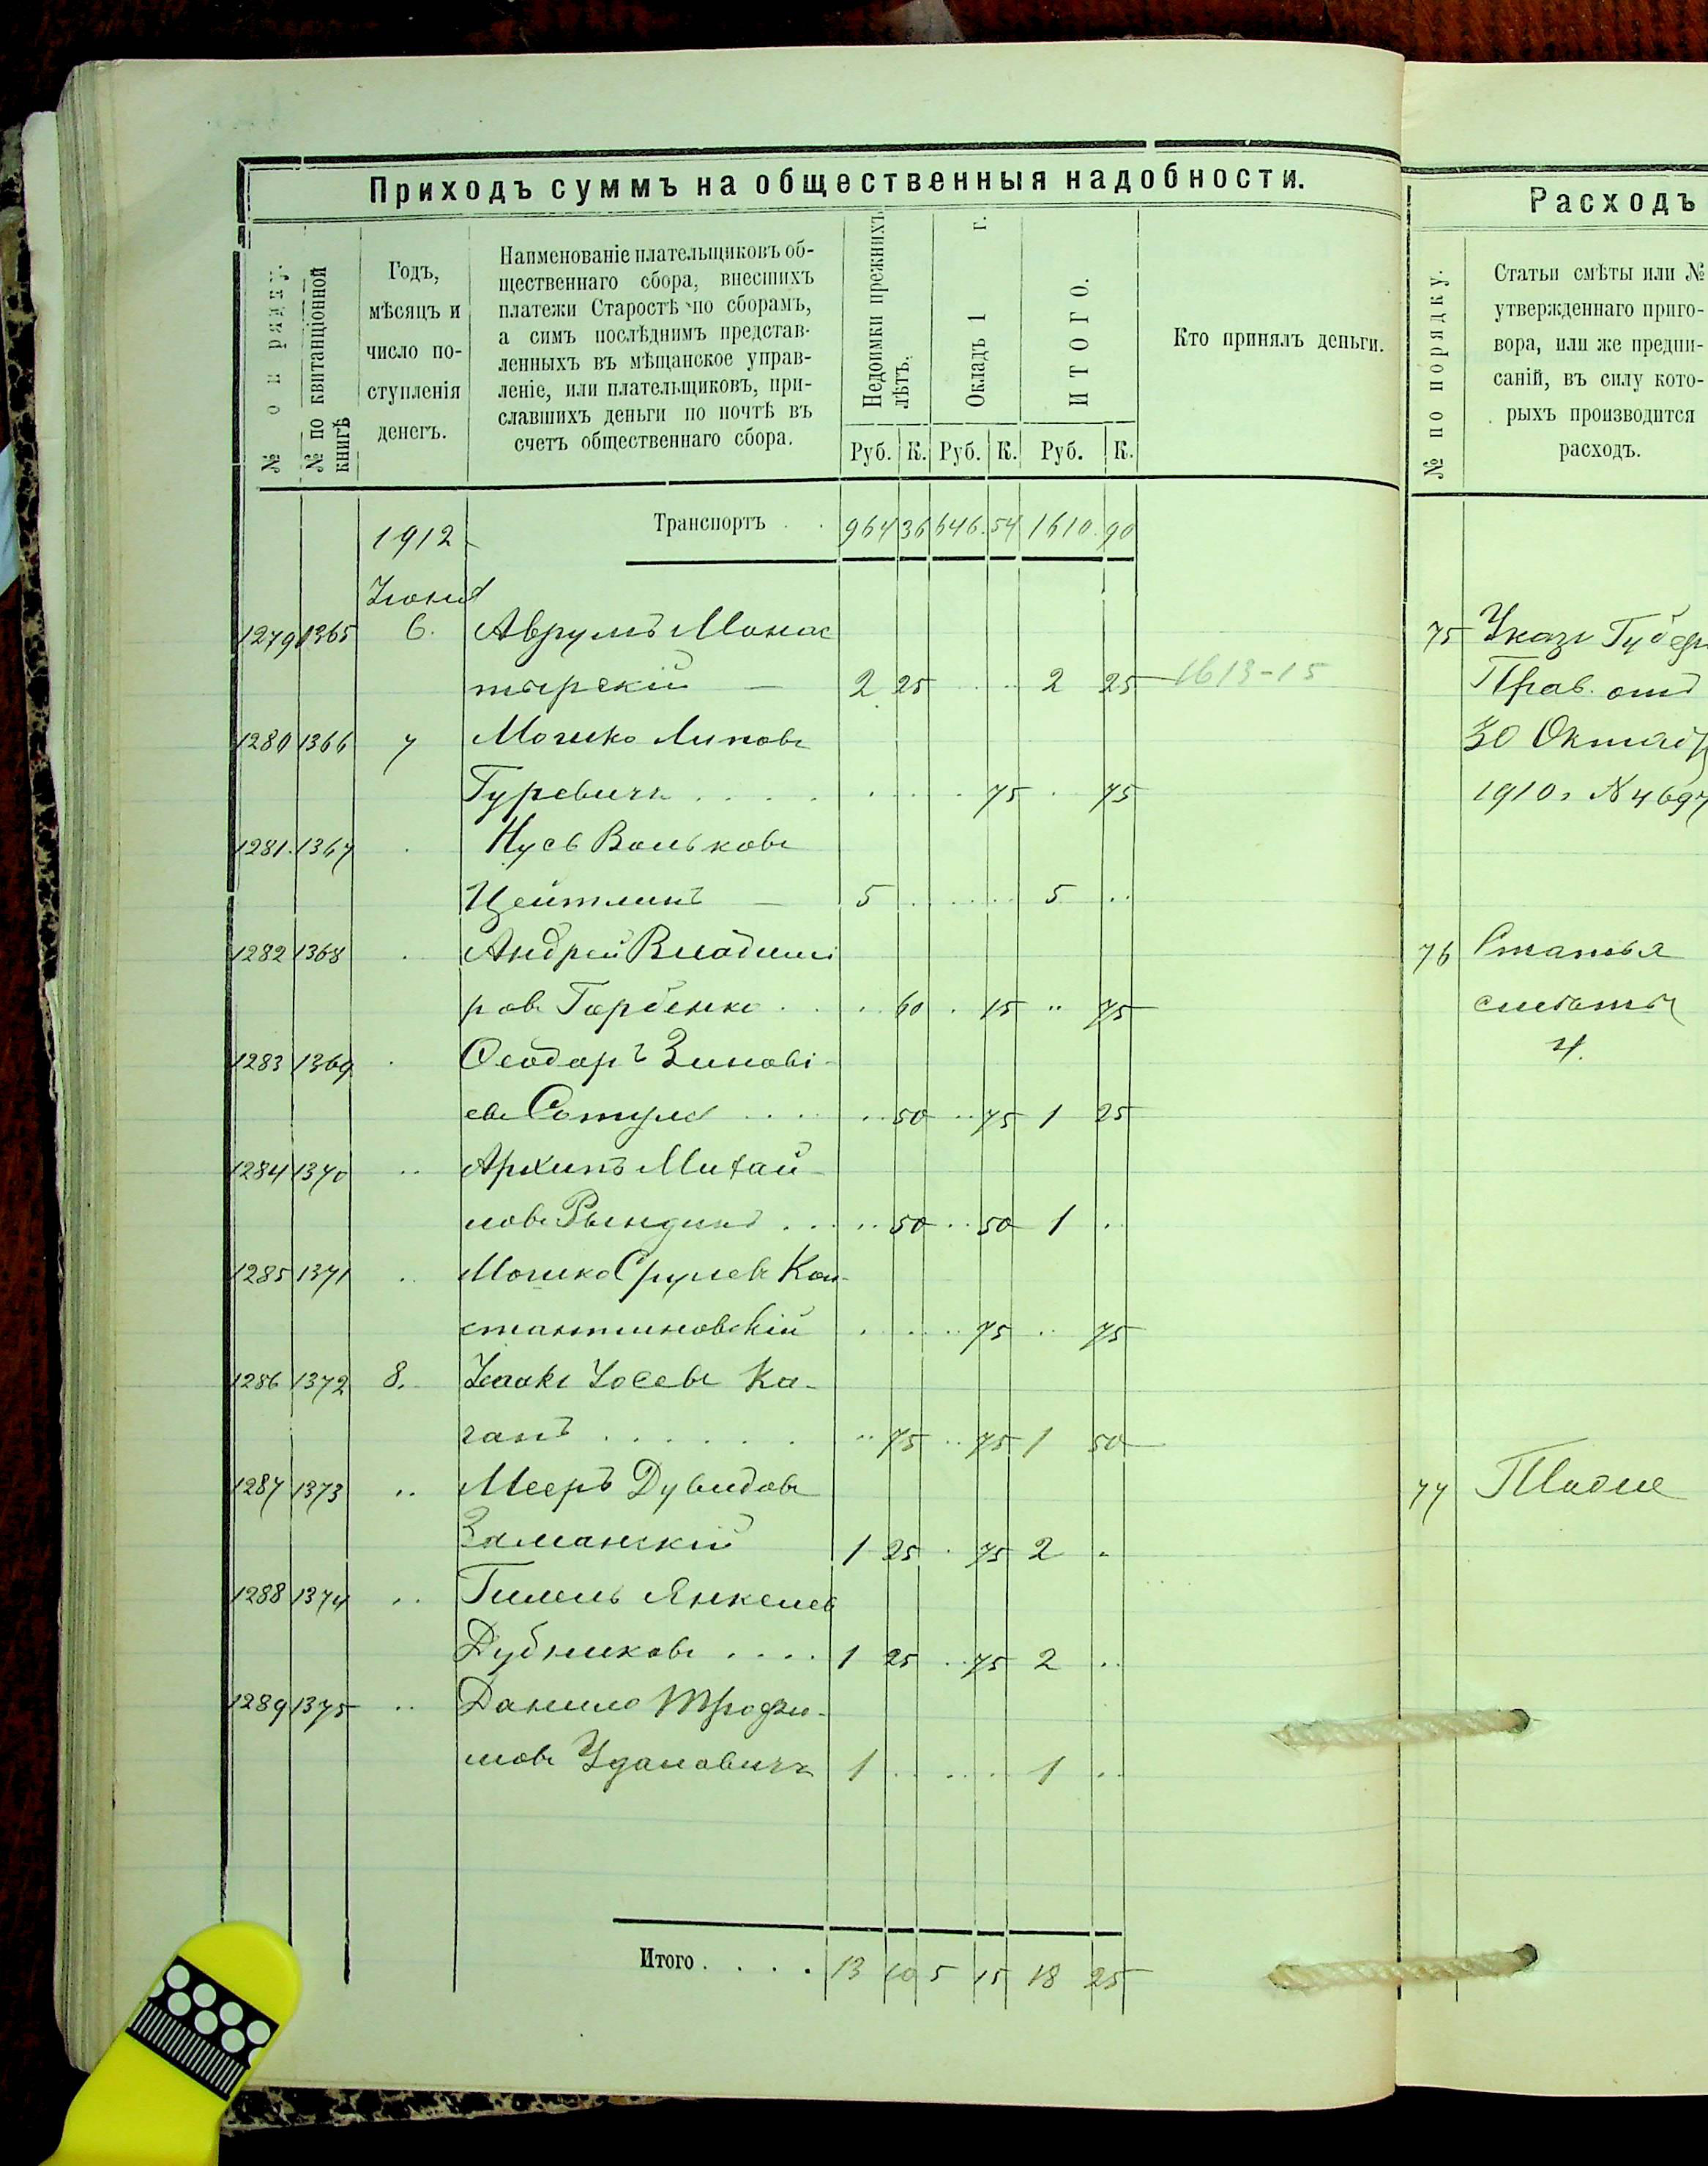 Приходъ суммъ на общественныя надобности.
№ по квитанціонной книгѣ
Годъ,
мѣсяцъ и
число по-
ступленія
денегъ.
Наименованіе плательщиковъ об-
щественнаго сбора, внесшихъ
платежи Старостѣ по сборамъ,
а симъ послѣднимъ представ-
ленныхъ въ мѣщанское управ-
леніе, или плательщиковъ, при-
славшихъ деньги по почтѣ въ
счетъ общественнаго сбора.
Недоимки прежнихъ лѣтъ.
Окладъ 1 г.
ИТОГО.
Руб. К. Руб. К. Руб. К.
Кто принялъ деньги.
1912 Транспортъ . . 964 36 646 54 1610 90
Іюня
1279 1365 6. Аврумъ Монас
тырскій — 2 25 . . . 2 25 1613-15
1280 1366 7 Мошко Липовъ
Гуревичъ . . . . . . . . 75 . 75
1281 1367 . Нусъ Вольковъ
Цейтлинъ — 5 . . . . . 5 . .
1282 1368 . Андрей Владими
ровъ Горбенко . . . . 60 . 15 " 75
1283 1369 . Ѳеодоръ Зиновi-
евъ Сотула . . . . . . 50 . . 75 1 25
1284 1370 . . Архипъ Михай-
ловъ Рындинъ . . . . . 50 . . 50 1 . .
1285 1371 . . Мошко Срулевъ Кон-
стантиновскій . . . . . 75 . . 75
1286 1372 8. Исаакъ Іосевъ Ка-
ганъ . . . . . . . . 75 . . 75 1 50
1287 1373 . . Мееръ Дувидовъ
Заманскій 1 25 . 75 2 .
1288 1374 . . Гилель Янкелев
Дубниковъ . . . . 1 25 . . 75 2 . .
1289 1375 . . Данило Трофи-
мовъ Удаловичъ 1 . . . . . 1 . .
Итого . . . . 13 10 5 15 18 25
Расходъ
№ по порядку.
Статьи смѣты или №
утвержденнаго приго-
вора, или же предпи-
саній, въ силу кото-
рыхъ производится
расходъ.
75 Указъ Губерн
Прав. отъ
30 Октяб
1910 г. № 4697
76 Статья
смѣты
4.
77 Тоже